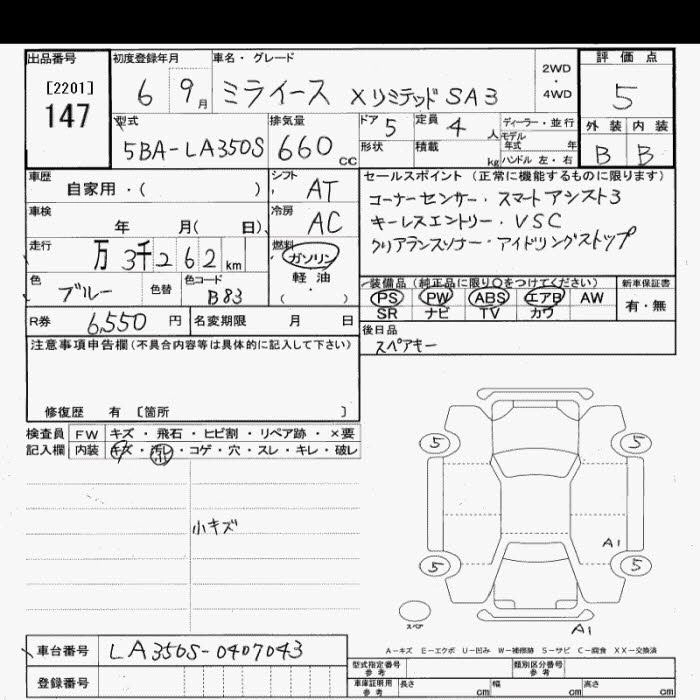 出品番号 初度登録年月 車名・グレード 2WD・4WD 評価点
[2201]
147
6 9月 ミライース XリミテッドSA3 5
型式 排気量 ドア 定員 ディーラー・並行 外装 内装
5BA-LA350S 660cc 5 4人 モデル年式 年 B B
形状 積載 kg ハンドル 左・右
車歴 自家用・( ) シフト AT
セールスポイント(正常に機能するものに限ります)
コーナーセンサー・スマートアシスト3
キーレスエントリー・VSC
クリアランスソナー・アイドリングストップ
車検 年 月( 日) 冷房 AC
走行 万3千262km 燃料 ガソリン
軽油
( ・ )
色 ブルー 色替 色コード B83
装備品(純正品に限り○をつけてください) 新車保証書
PS PW ABS エアB AW 有・無
SR ナビ TV カワ
R券 6,550円 名変期限 月 日
後日品
スペアキー
注意事項申告欄(不具合内容等は具体的に記入して下さい)
修復歴 有 [箇所 ]
検査員 FW キズ・飛石・ヒビ割・リペア跡・×要
記入欄 内装 キズ・汚レ・コゲ・穴・スレ・キレ・破レ
小キズ
5 5
A1
5 5
スペア
A1
A-キズ E-エクボ U-凹み W-補修跡 S-サビ C-腐食 XX-交換済
車台番号 LA350S-0407043
型式指定番号 参考 類別区分番号 参考
登録番号
車庫証明用 参考 長さ cm 幅 cm 高さ cm